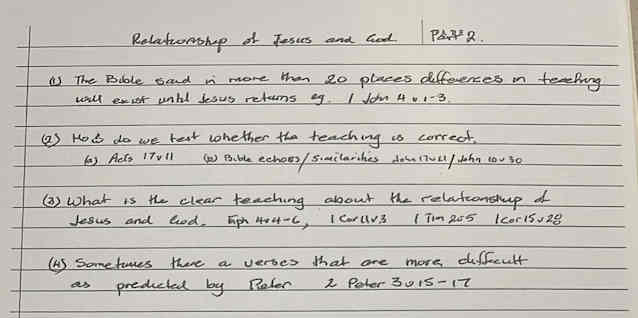 Relationship of Jesus and God Part 2.
(1) The Bible said in more than 20 places differences in teaching
will exist until Jesus returns eg. 1 John 4 v 1-3.
(2) How do we test whether the teaching is correct.
(a) Acts 17v11 (b) Bible echoes/similarities John 17v21/John 10v30
(3) What is the clear teaching about the relationship of
Jesus and God. Eph 4v4-6, 1 Cor 11v3 1 Tim 2v5 1 Cor 15v28
(4) Sometimes there a verses that are more difficult
as predicted by Peter 2 Peter 3v15-17